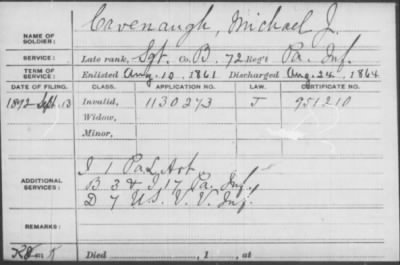 NAME OF SOLDIER: Cavenaugh, Michael J.
SERVICE: Late rank, Sgt. Co. B, 72 Reg't Pa. Inf.
TERM OF SERVICE: Enlisted Aug. 10, 1861 Discharged Aug. 24, 1864
DATE OF FILING. CLASS. APPLICATION NO. LAW. CERTIFICATE NO.
1892 Sept. 13 Invalid, 1130273 J 951210
Widow,
Minor,
ADDITIONAL SERVICES:
I 1 Pa L Art
B 3 & I 17 Pa. Inf.
D 7 U.S. V. V. Inf.
REMARKS:
Died , 1 , at